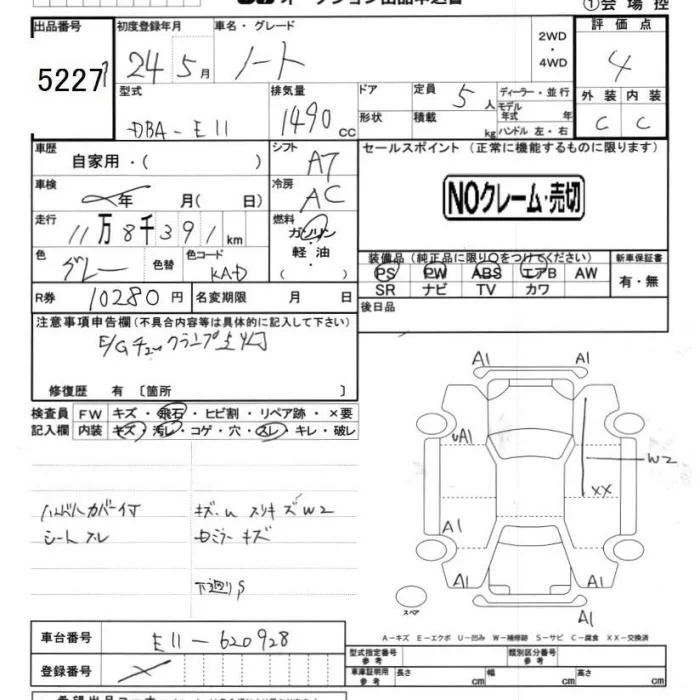 オークション出品申込書
①会場控
出品番号 初度登録年月 車名・グレード 2WD ・ 4WD 評価点
5227 24 5月 ノート 4
型式 排気量 ドア 定員 5人 ディーラー・並行 外装 内装
DBA-E11 1490cc 形状 積載 kg モデル年式 年 ハンドル 左・右 C C
車歴 自家用・( ) シフト AT セールスポイント (正常に機能するものに限ります)
車検 年 月( 日) 冷房 AC NOクレーム・売切
走行 11万8千391km 燃料 ガソリン・軽油・( )
色 グレー 色替 色コード KAD 装備品(純正品に限り○をつけてください) 新車保証書
PS PW ABS エアB AW 有・無
SR ナビ TV カワ
R券 10280円 名変期限 月 日 後日品
注意事項申告欄(不具合内容等は具体的に記入して下さい)
E/Gチェックランプ点灯
修復歴 有 〔箇所 〕
検査員 FW キズ・飛石・ヒビ割・リペア跡・×要
記入欄 内装 キズ・汚レ・コゲ・穴・スレ・キレ・破レ
A1 A1
UA1 W2
XX
ハンドルカバー付 キズ.U スリキズW2
シートスレ キズ
A1
下廻りS
A1 A1
A1
スペア
A-キズ E-エクボ U-凹み W-補修跡 S-サビ C-腐食 XX-交換済
車台番号 E11-620928 型式指定番号 参考 類別区分番号 参考
登録番号 車庫証明用 参考 長さ cm 幅 cm 高さ cm